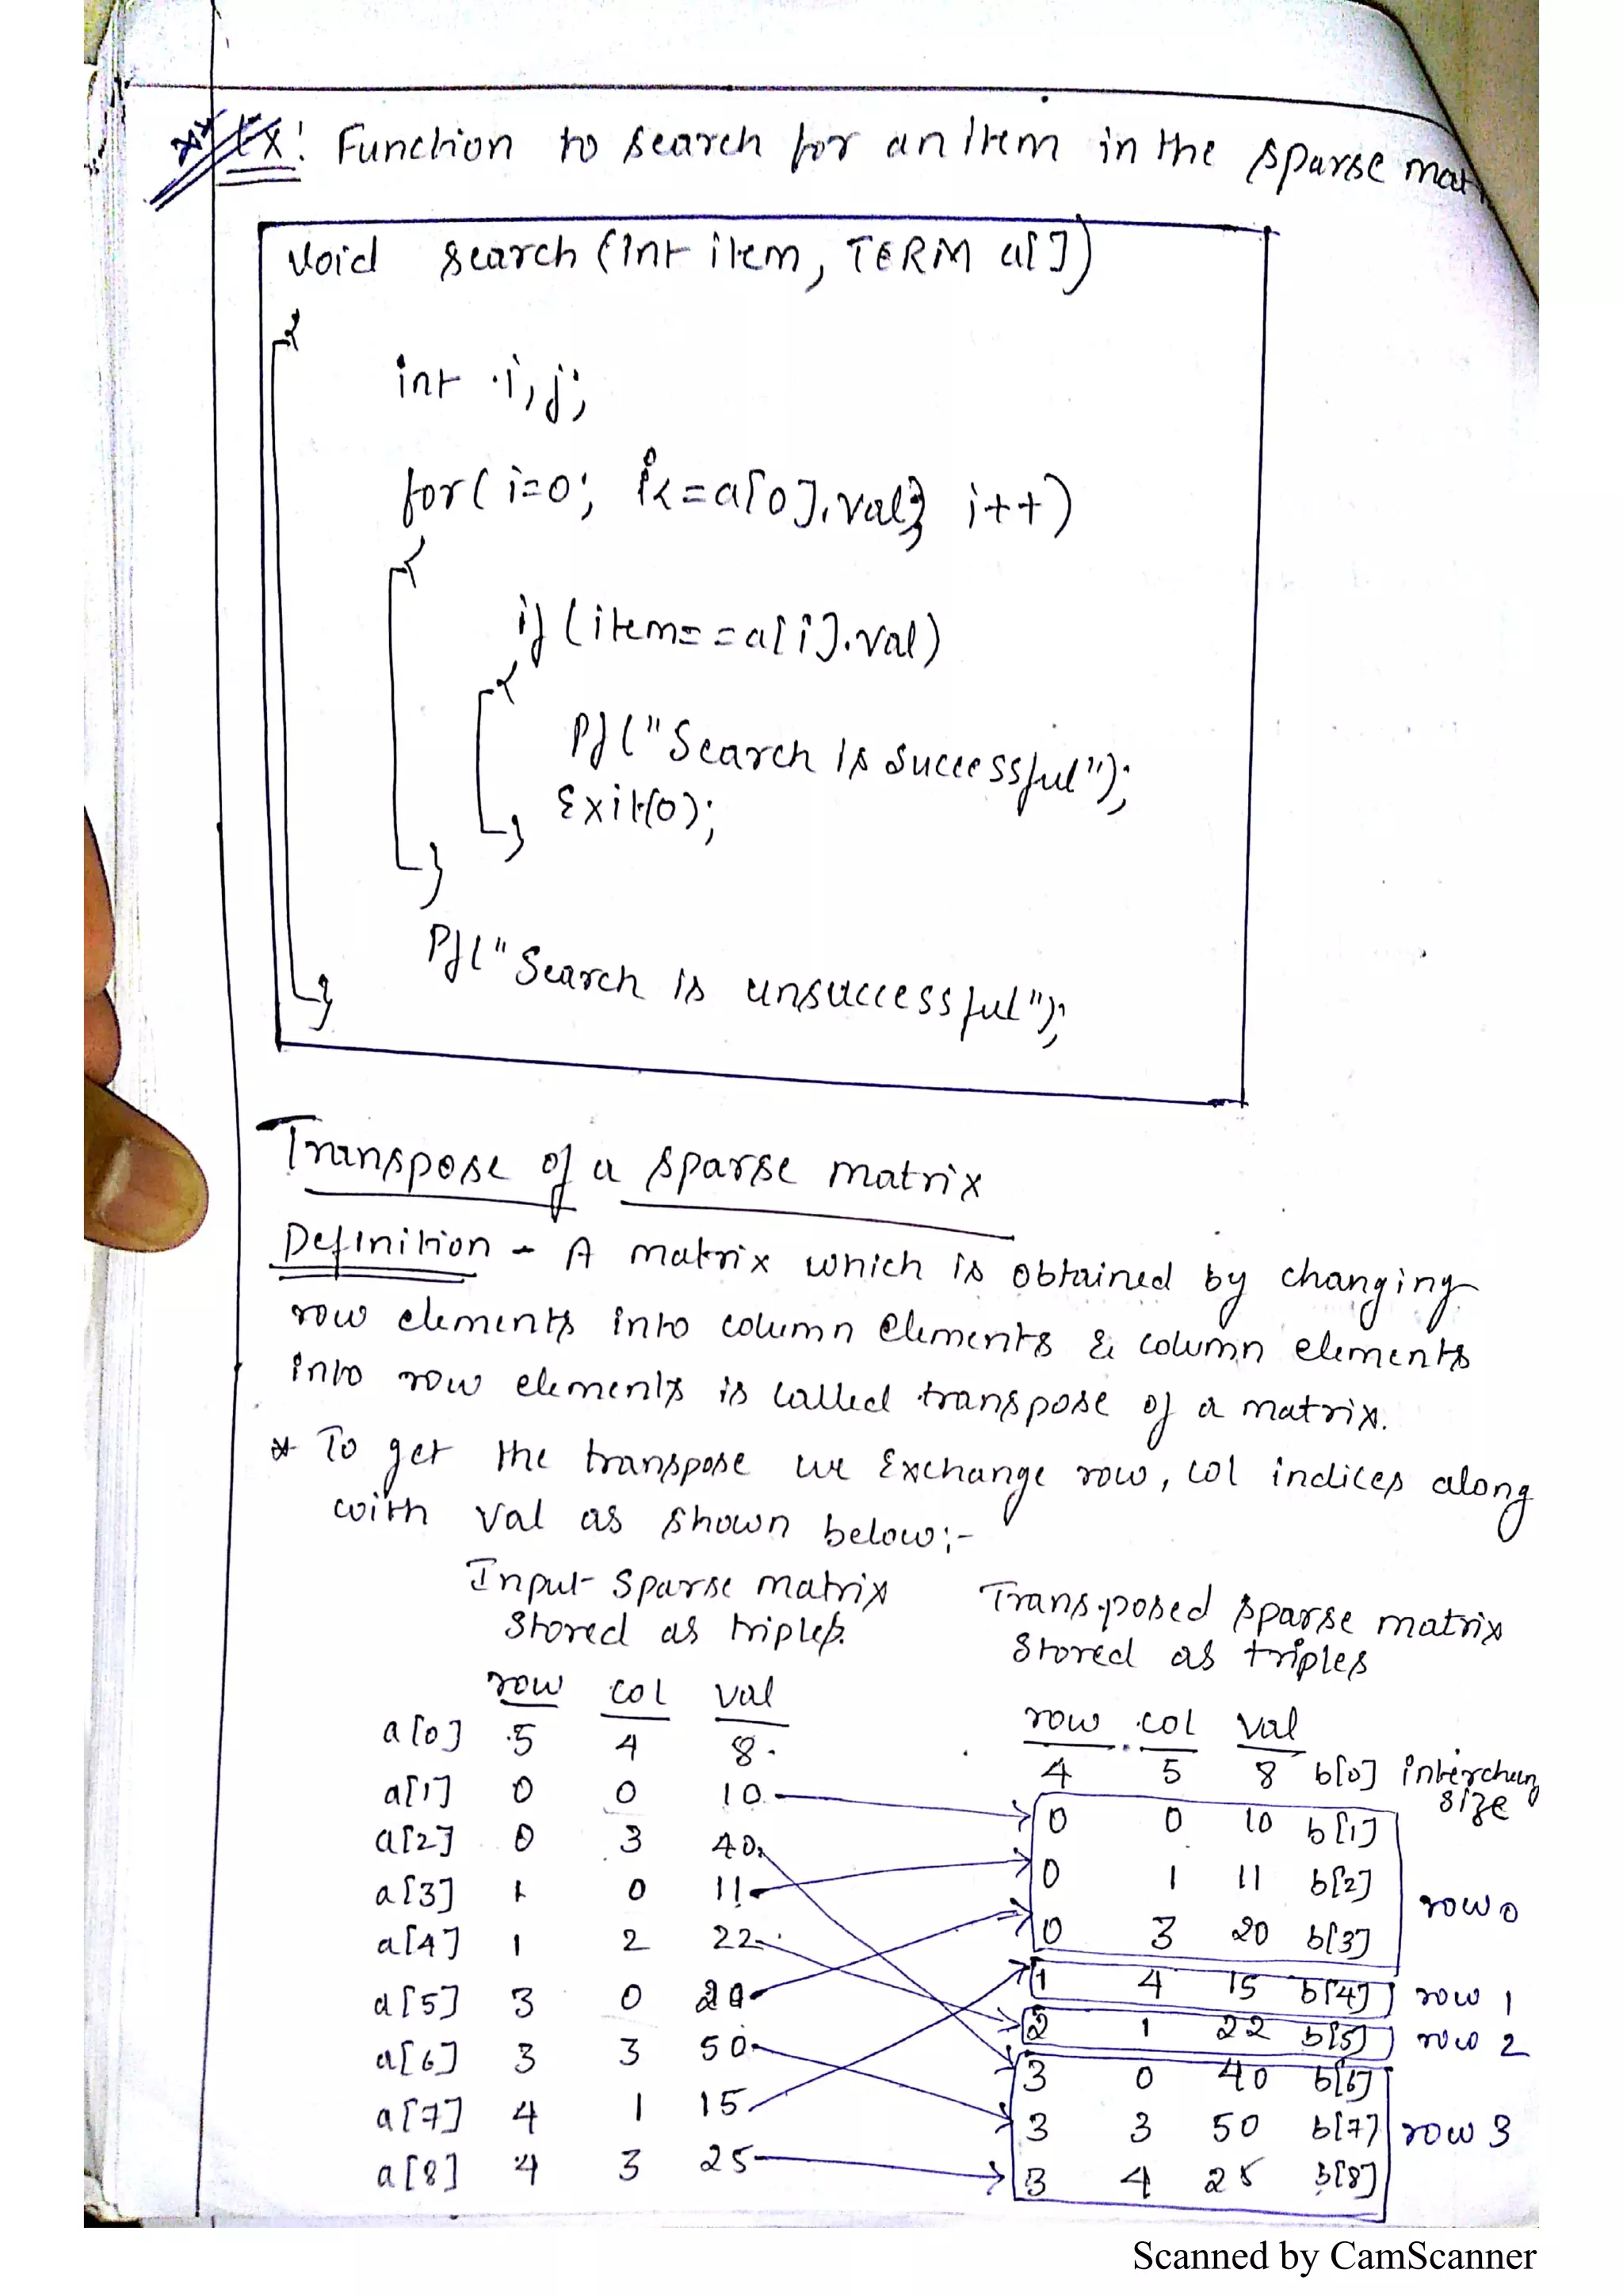 Ex: Function to search for an item in the sparse mat
void search (int item, TERM a[])
{
int i, j;
for( i=0; i<=a[0].val; i++)
{
if (item==a[i].val)
{
Pf("Search is successful");
Exit(0);
}
}
Pf("Search is unsuccessful");
}
Transpose of a sparse matrix
Definition - A matrix which is obtained by changing
row elements into column elements & column elements
into row elements is called transpose of a matrix.
* To get the transpose we Exchange row, col indices along
with val as shown below:-
Input Sparse matrix Transposed sparse matrix
Stored as triples. Stored as triples
row col val row col val
a[0] 5 4 8 4 5 8 b[0] interchang size
a[1] 0 0 10 0 0 10 b[1]
a[2] 0 3 40 0 1 11 b[2] row 0
a[3] 1 0 11 0 3 20 b[3]
a[4] 1 2 22 1 4 15 b[4] row 1
a[5] 3 0 20 2 1 22 b[5] row 2
a[6] 3 3 50 3 0 40 b[6]
a[7] 4 1 15 3 3 50 b[7] row 3
a[8] 4 3 25 3 4 25 b[8]
Scanned by CamScanner